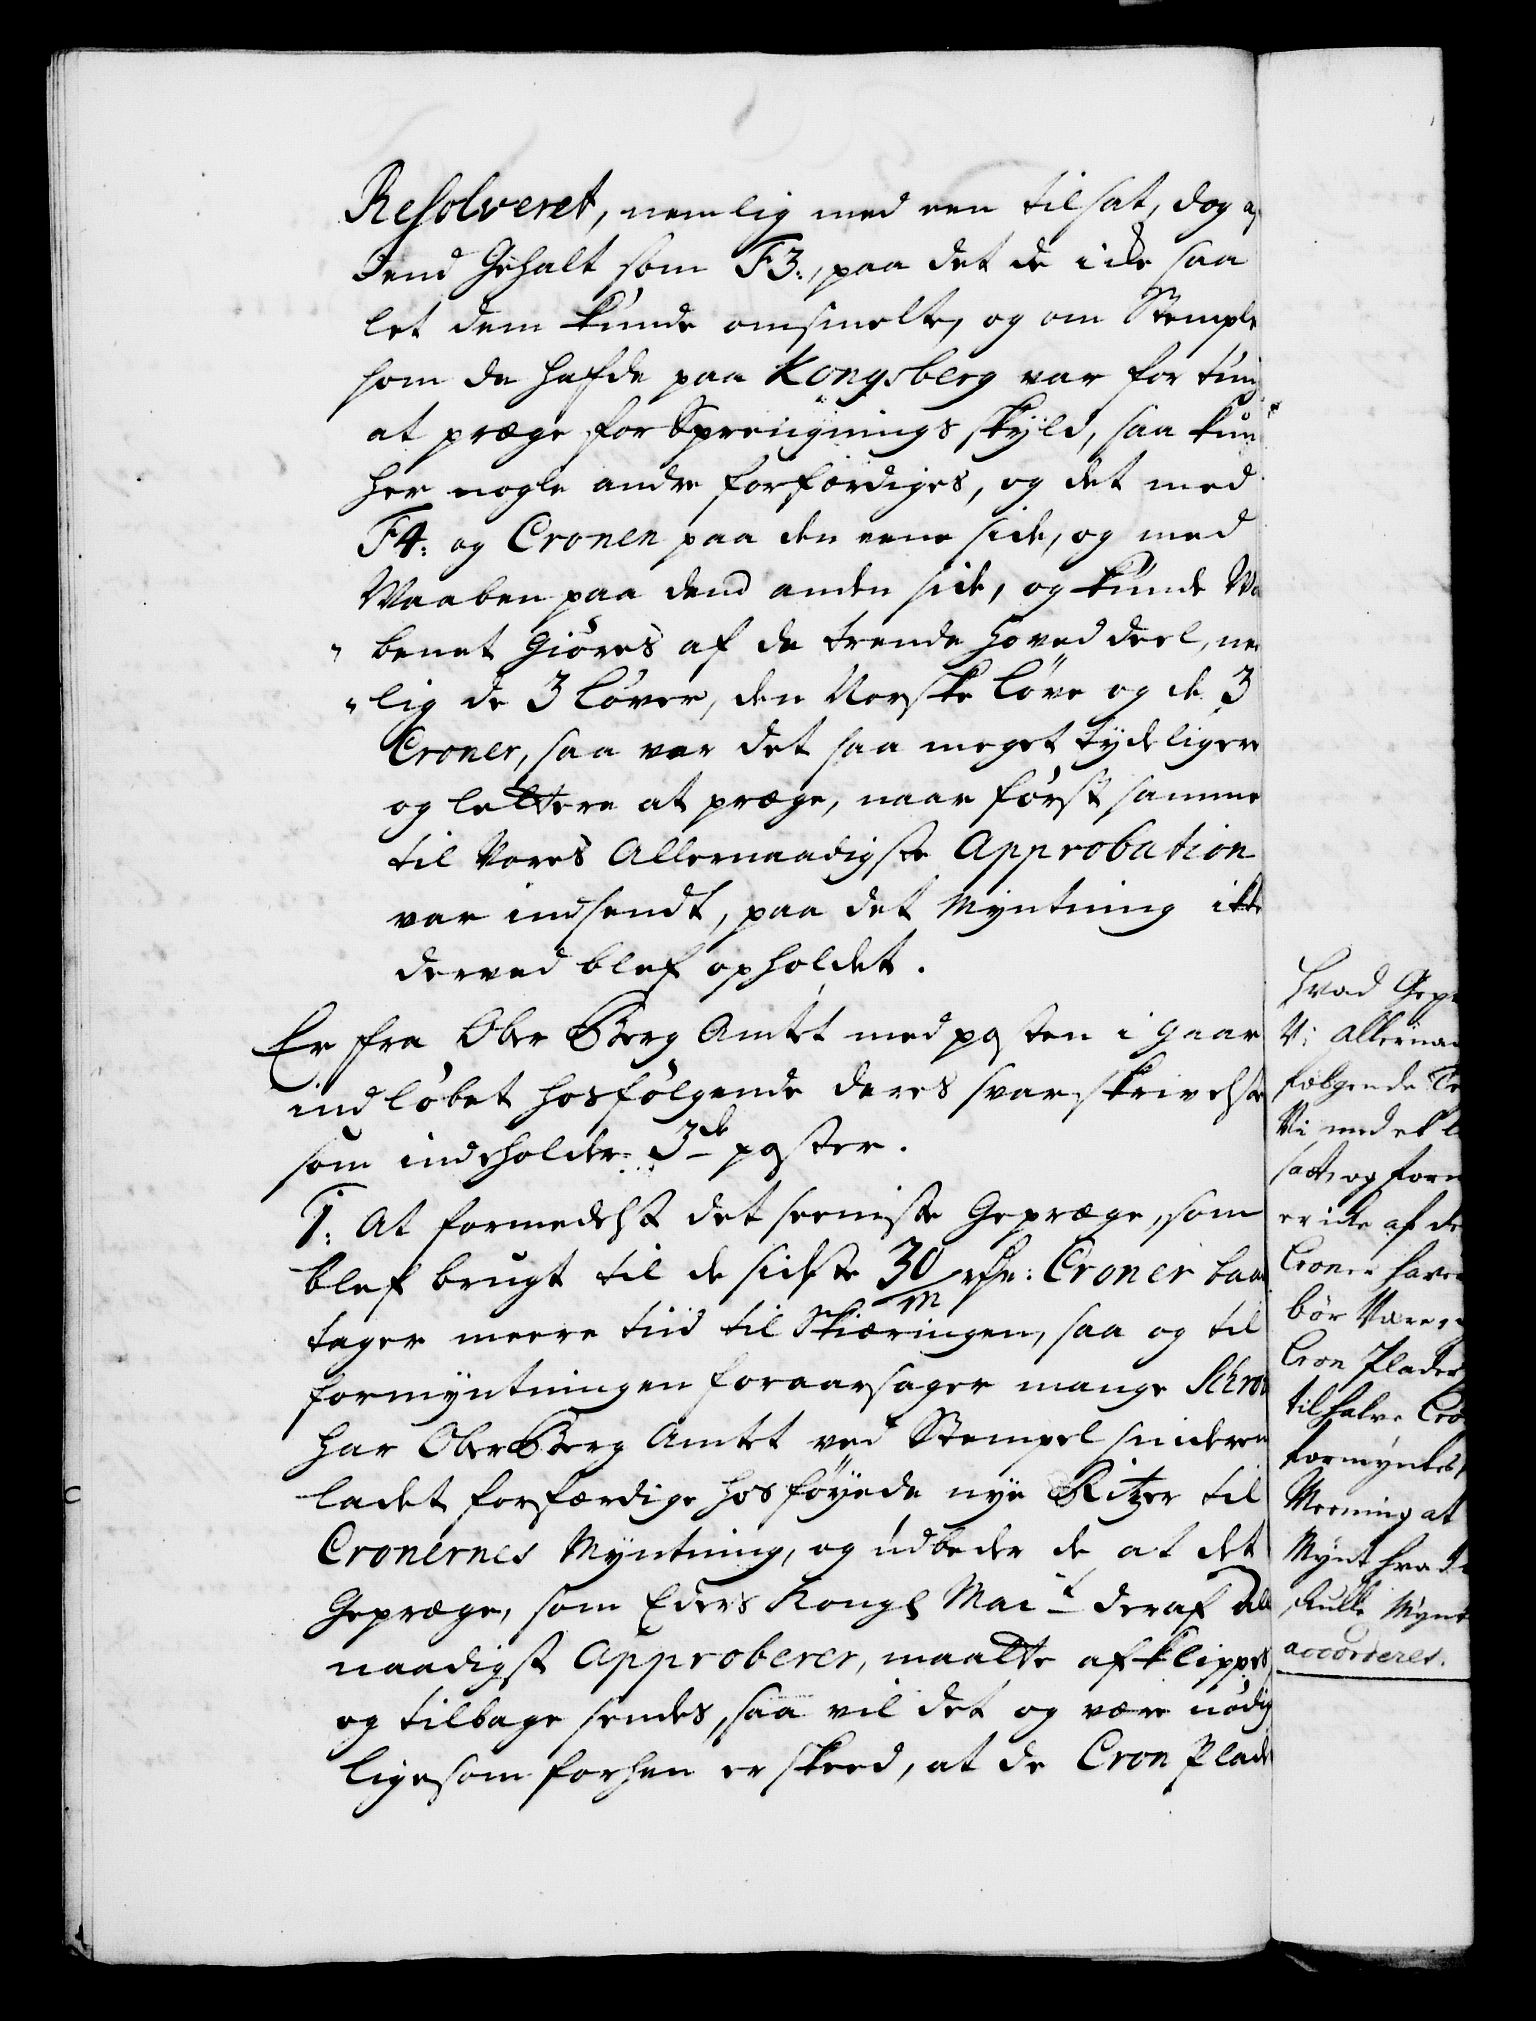 Resolveret, nemlig med een tilsat, dog af
dend Gehalt som F3:, paa det de icke saa
let dem kunde omsmelte, og om Stemple
som de hafde paa Kongsberg var for tung
at præge for Sprengnings skyld, saa kun
her nogle andre forfærdiges, og det med
F4: og Cronen paa den eene side, og med
Waaben paa dend anden side, og kunde Wa
benet giöres af de trende hoved deel, nem
lig de 3 löver, den Norske löve og de 3
Croner, saa var det saa meget tydeligere
og lettere at præge, naar först samme
til Vores Allernaadigste Approbation
var indsendt, paa det Myntning ikke
derved blef opholdet.
Er fra Ober Berg Amtet med posten i gaar
indlöbet hosfölgende deres svar skrivelse
som indeholder 3de poster.
1: At formedelst det seeniste Gepræge, som
blef brugt til de sidste 30/m Croner baa
tager meere tiid til Skiæringen, saa og til
formyntningen foraarsager mange Schro
har Ober Berg Amtet ved Stempel snideren
ladet forfærdige hosföyede nye Ritzer til
Cronernes Myntning, og udbeder de at det
Gepræge, som Eders Kongl Mait deraf alle
naadigst Approberer, maatte afklippes
og tilbage sendes, saa vil det og være nödig
ligesom forhen er skeed, at de Cron Plade
Hvad Gepr
Vi allernaa
fölgende
Vi med et
satt, og form
er icke af de
Croner have
bör Være
Cron Plader
til halve Cro
formyntes,
Meening at
Mynt hvad
skulle Mynt
accorderes.